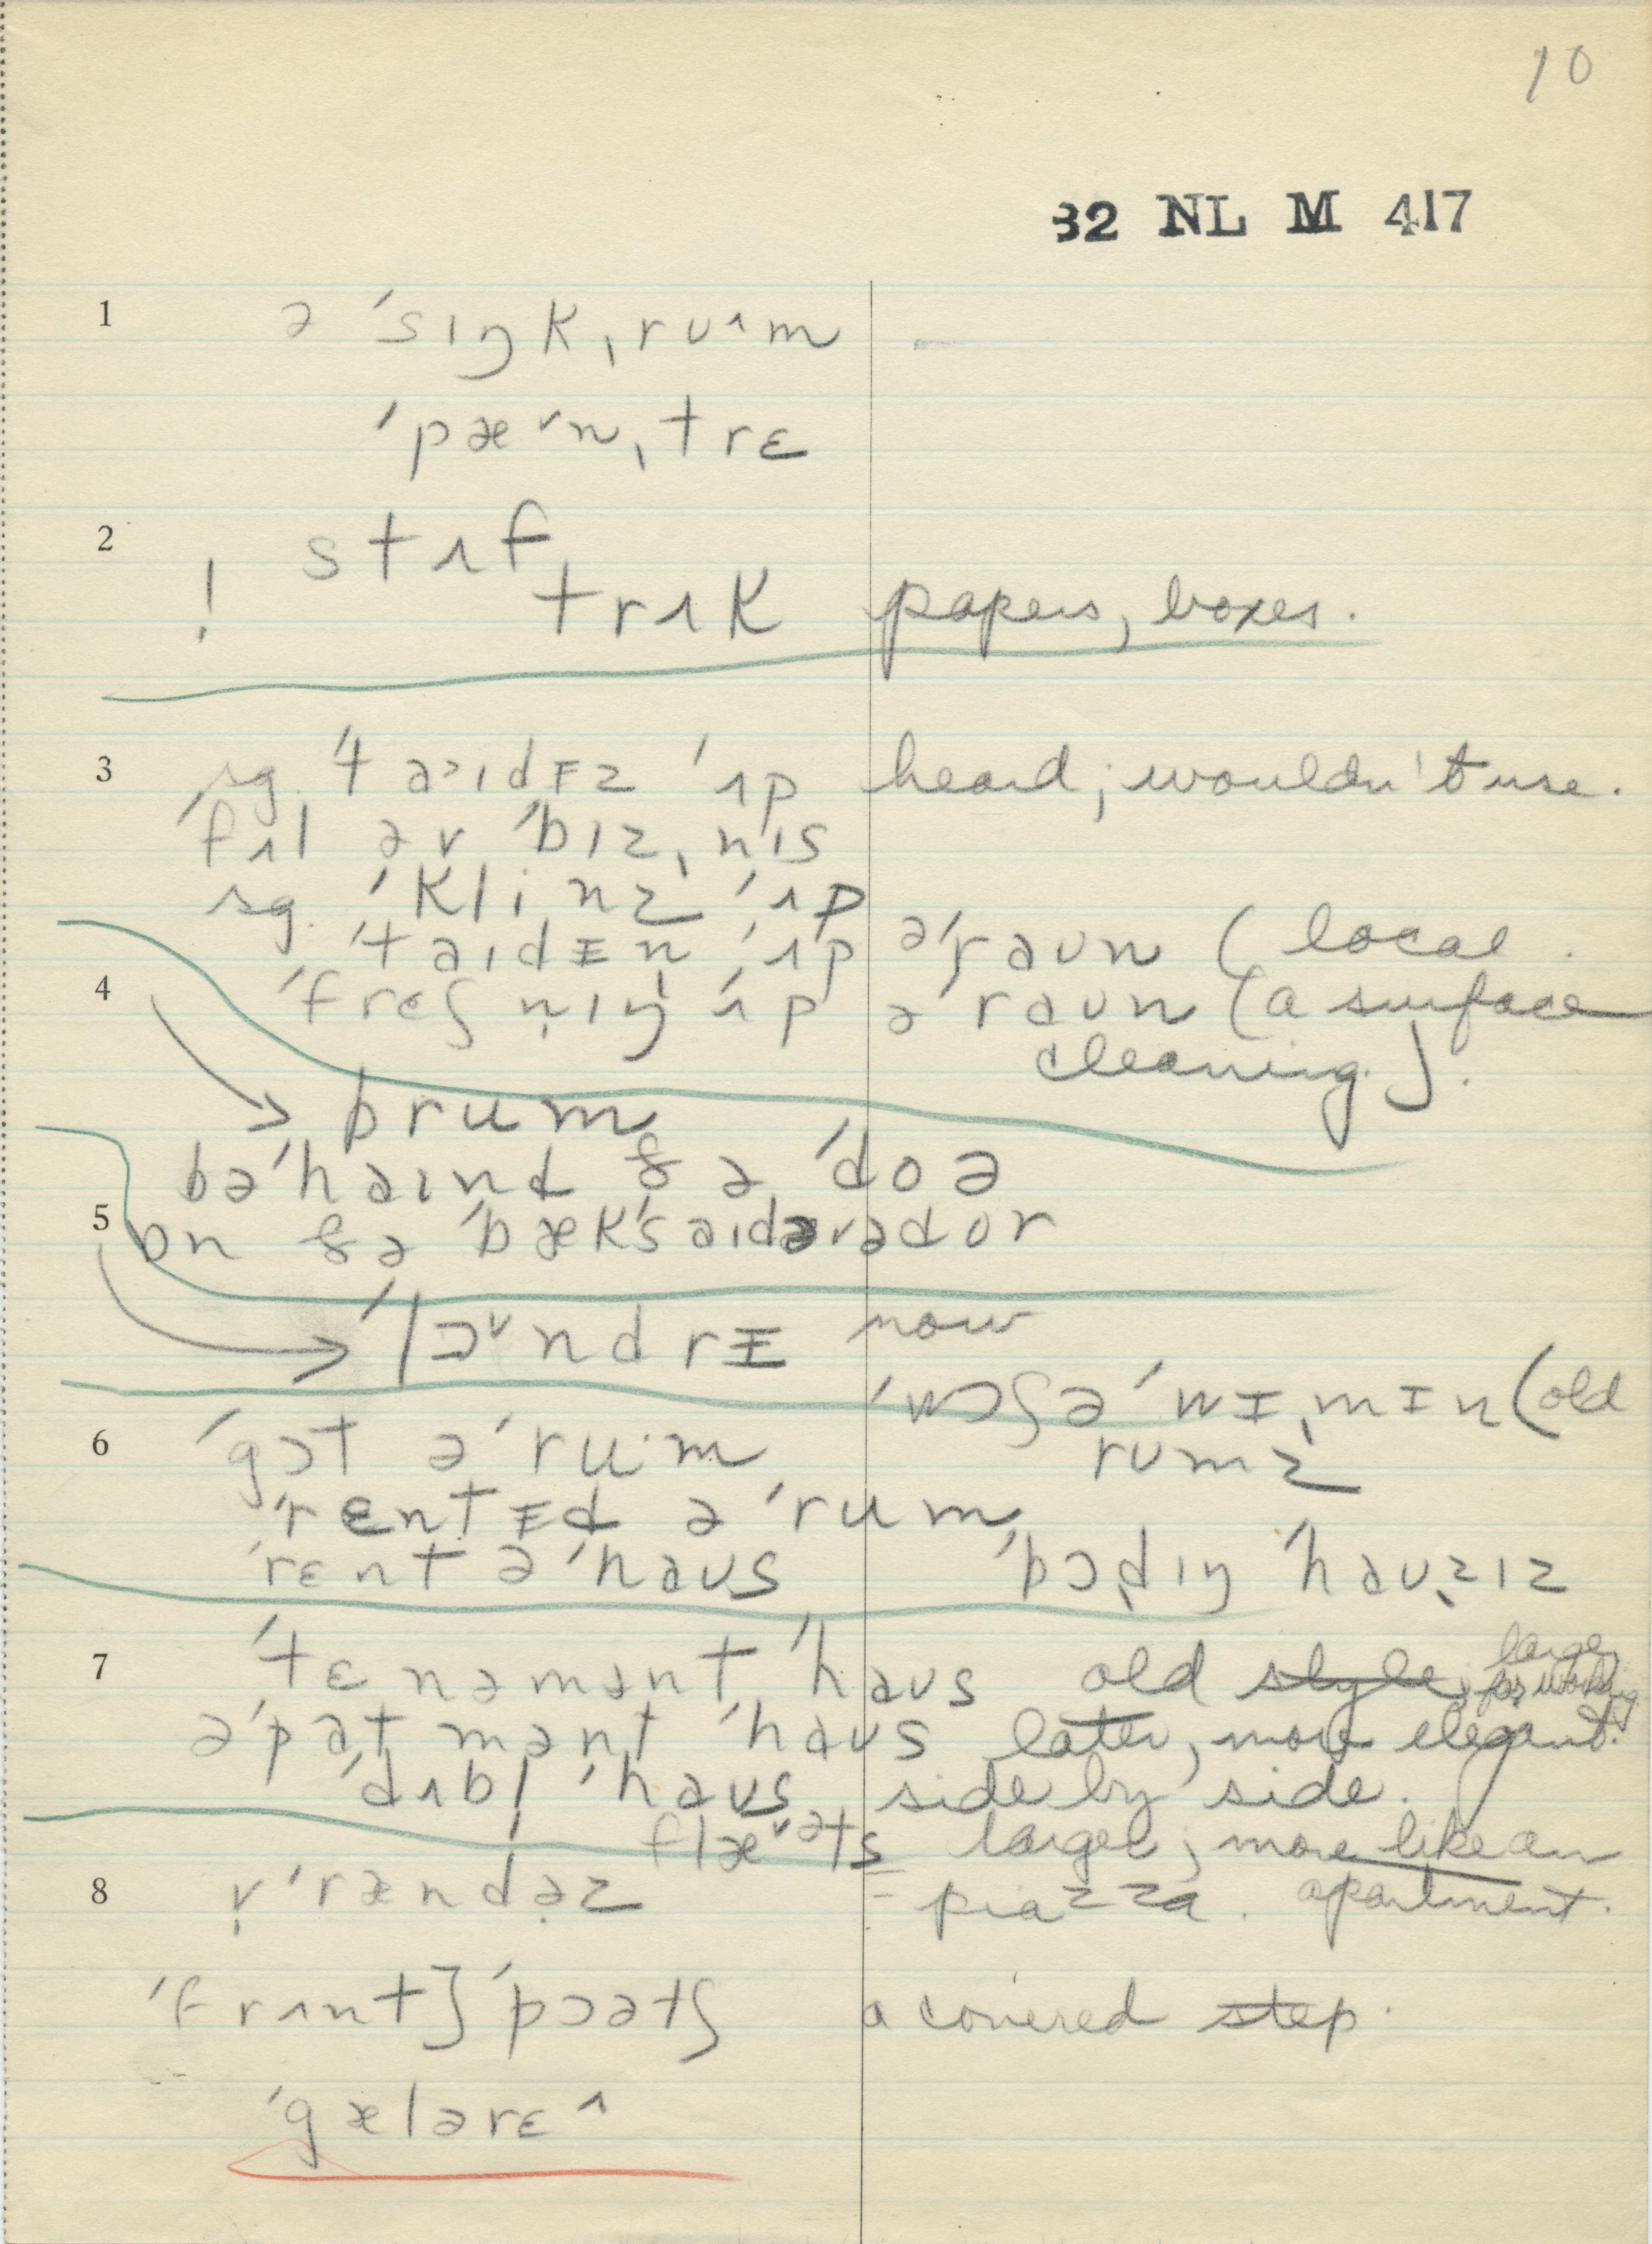 10
32 NL M 417
1 ə ˈsɪŋkˌruˆm
ˈpæ˅nˌtrɛ
2 stʌf
! trʌk papers, boxes.
3 sg. ˈtaɪdᵻz ˈʌp heard; wouldn't use.
ˈfʌl əv ˈbɪzˌnɪs
sg. ˈklinz ˈʌp
sg. ˈtaɪdᵻn ˈʌp əˈraʊn (local.
4 ˈfrɛʃn̩ɪŋ ˈʌp əˈraʊn (a surface
cleaning).
brum
bəˈhaɪnd ðə ˈdoə
5 ɒn ðə ˈbækˈsaɪd əv ə dor
ˈlɔ˅ndrᵻ now
ˈwɔʃəˈwᵻˌmᵻn (old
6 ˈgɔt əˈru·m rumz
ˈrɛntᵻd əˈrum
ˈrɛnt əˈhaʊs ˈbɔdɪŋ ˈhaʊzɪz
7 ˈtɛnəmənt ˈhaʊs old style, large, for working
əˈpatmənt ˈhaʊs later, more elegant.
ˈdʌbl̩ ˈhaʊs side by side.
flæ˅əts larger; more like an
8 v̩ˈrændəz = piazza. apartment.
ˈfrʌnt} ˈpɔətʃ a covered step.
ˈgælərɛˆ